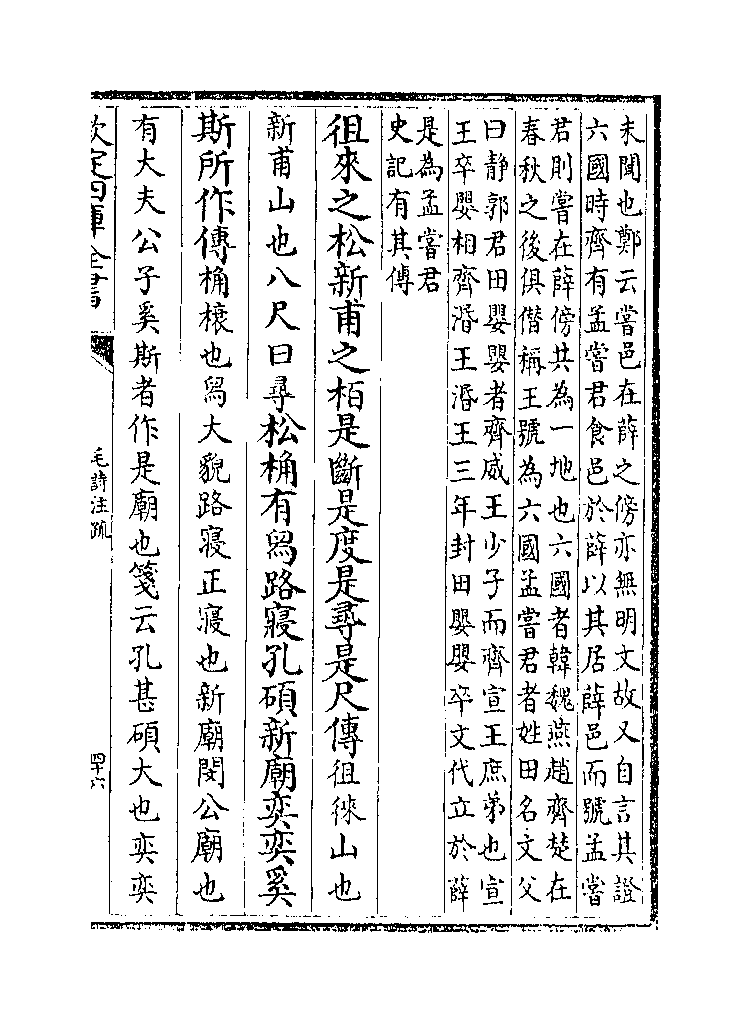 未聞也鄭云嘗邑在薛之傍亦無明文故又自言其證
六國時齊有孟嘗君食邑於薛以其居薛邑而號孟嘗
君則嘗在薛傍共為一地也六國者韓魏燕趙齊楚在
春秋之後俱僣稱王號為六國孟嘗君者姓田名文父
曰靜郭君田嬰嬰者齊威王少子而齊宣王庶弟也宣
王卒嬰相齊湣王湣王三年封田嬰嬰卒文代立於薛
是為孟嘗君
史記有其傳
徂來之松新甫之栢是斷是度是尋是尺傳徂徠山也
新甫山也八尺曰尋松桷有舄路寢孔碩新廟奕奕奚
斯所作傳桷榱也舄大貌路寢正寢也新廟閔公廟也
有大夫公子奚斯者作是廟也箋云孔甚碩大也奕奕
欽定四庫全書
毛詩注疏
四十六